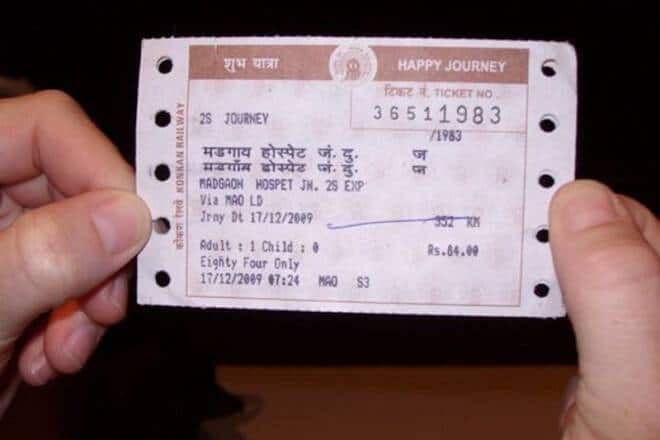 शुभ यात्रा HAPPY JOURNEY
टिकट नं. TICKET NO.
36511983
2S JOURNEY
/1983
मडगाव होस्पेट जं. दु. ज
मडगाँम होस्पेट जं. दु. ज
MADGAON HOSPET JN. 2S EXP
Via MAO LD
Jrny Dt 17/12/2009 352 KM
Adult : 1 Child : 0 Rs.84.00
Eighty Four Only
17/12/2009 07:24 MAO S3
कोंकण रेलवे KONKAN RAILWAY